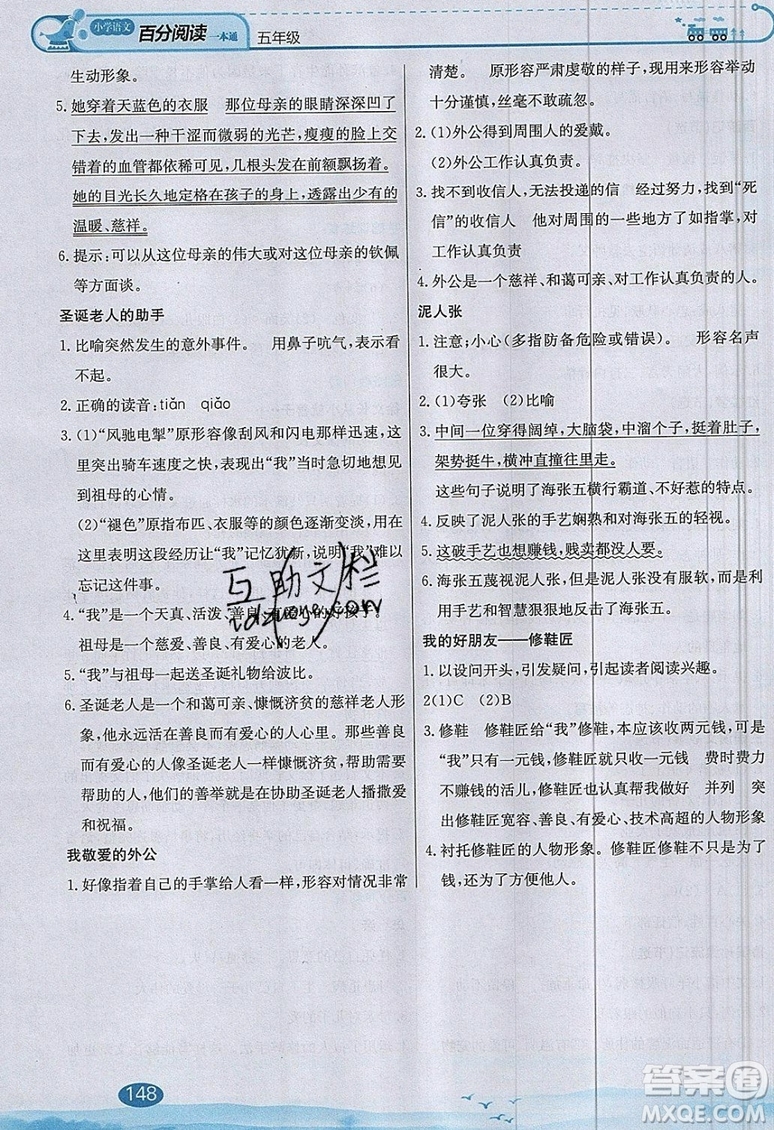 小学语文 百分阅读 一本通 五年级
生动形象。
5. 她穿着天蓝色的衣服　那位母亲的眼睛深深凹了
下去，放出一种干涩而微弱的光芒，瘦瘦的脸上交
错着的血管都依稀可见，几根头发在前额飘扬着。
她的目光长久地定格在孩子的身上，透露出少有的
温暖、慈祥。
6. 提示：可以从这位母亲的伟大或对这位母亲的钦佩
等方面谈。
圣诞老人的助手
1. 比喻突然发生的意外事件。　用鼻子吭气，表示看
不起。
2. 正确的读音：tiǎn　qiǎo
3. (1)“风驰电掣”原形容像刮风和闪电那样迅速，这
里突出骑车速度之快，表现出“我”当时急切地想见
到祖母的心情。
(2)“褪色”原指布匹、衣服等的颜色逐渐变淡，用在
这里表明这段经历让“我”记忆犹新，说明“我”难以
忘记这件事。
4. “我”是一个天真、活泼、善良、有爱心的好孩子。
祖母是一个慈爱、善良、有爱心的人。
5. “我”与祖母一起送圣诞礼物给波比。
6. 圣诞老人是一个和蔼可亲、慷慨济贫的慈祥老人形
象，他永远活在善良而有爱心的人心里。那些善良
而有爱心的人像圣诞老人一样慷慨济贫，帮助需要
帮助的人，他们的善举就是在协助圣诞老人播撒爱
和祝福。
我敬爱的外公
1. 好像指着自己的手掌给人看一样，形容对情况非常
清楚。　原形容严肃虔敬的样子，现用来形容举动
十分谨慎，丝毫不敢疏忽。
2. (1)外公得到周围人的爱戴。
(2)外公工作认真负责。
3. 找不到收信人，无法投递的信　经过努力，找到“死
信”的收信人　他对周围的一切了如指掌，对
工作认真负责
4. 外公是一个慈祥、和蔼可亲、对工作认真负责的人。
泥人张
1. 注意；小心(多指防备危险或错误)。　形容名声
很大。
2. (1)夸张　(2)比喻
3. 中间一位穿得阔绰，大脑袋，中溜个子，挺着肚子，
架势挺牛，横冲直撞往里走。
这些句子说明了海张五横行霸道、不好惹的特点。
4. 反映了泥人张的手艺娴熟和对海张五的轻视。
5. 这破手艺也想赚钱，贱卖都没人要。
6. 海张五蔑视泥人张，泥人张没有用服软，而是利
用手艺和智慧狠狠地回击了海张五。
我的好朋友——修鞋匠
1. 以设问开头，引发疑问，引起读者阅读兴趣。
2(1)C　(2)B
3. 修鞋　修鞋匠给“我”修鞋，本应该收两元钱，可是
“我”只有一元钱，修鞋匠就只收一元钱　费时费力
不赚钱的小活，修鞋匠也认真帮我做好　并列　突
出修鞋匠宽容、善良、有爱心、技术高超的人物形象
4. 衬托修鞋匠的人物形象。修鞋匠修鞋不只是为了
钱，还为了方便他人。
互助文栏
148
答案圈
MXQE.COM